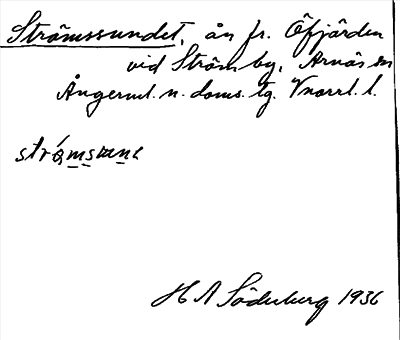 Strömssundet, ån fr. Öfjärden
vid Ström by, Arnäs sn
Ångerml. n. doms. tg. Vnorrl. l.
H A Söderberg 1936